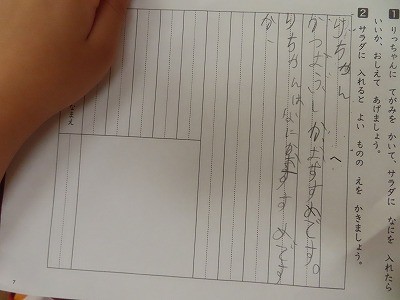 1 りっちゃんに てがみを かいて、サラダに なにを 入れたら
いいか、おしえて あげましょう。
2 サラダに 入れると よい ものの えを かきましょう。
りっちゃん へ
かつおぶしがおすすめです。
りちゃんはなにがおすすめです
か、
なまえ
7